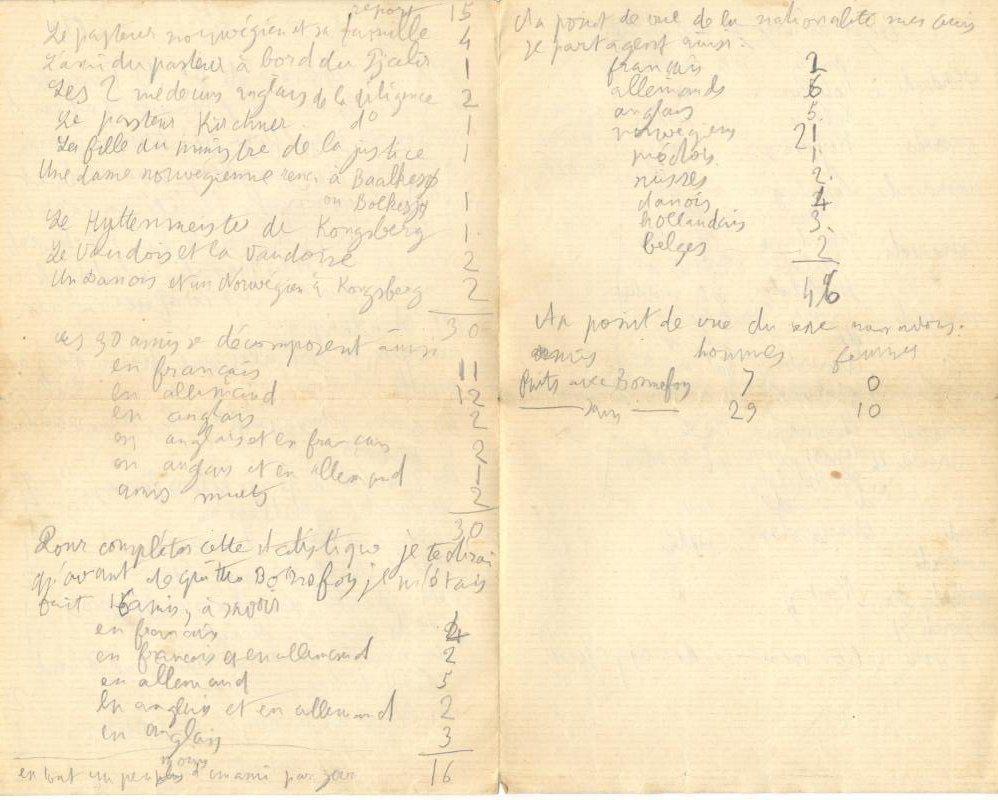 report 15
Le pasteur norwégien et sa famille 4
L'ami du pasteur à bord du 1
Les 2 médecins anglais de la diligence 2
Le pasteur Kirchner do 1
La fille du ministre de la justice 1
Une dame norwegienne renc. à
ou 1
Le Hyttenmeister de Kongsberg 1
Le Vaudois et la Vaudoise 2
Un Danois et un Norwégien à Kongsberg 2
30
Les 30 amis se décomposent ainsi
en français 11
en allemand 12
en anglais 2
en anglais et en français 2
en anglais et en allemand 1
amis muets 2
30
Pour compléter cette statistique je te dirai
qu'avant de quitter Bonnefoy je m'étais
fait 16 amis, à savoir
en français 4
en français et en allemand 2
en allemand 5
en anglais et en allemand 2
en anglais 3
16
en tout un peu moins d'un ami par jour
Au point de vue de la nationalité mes amis
se partagent ainsi:
français
allemands 6
anglais 5
norwégiens 21
suédois 1
suisses 2
danois 4
hollandais 3
belges 2
46
Au point de vue du sexe nous avons.
amis hommes femmes
faits avec Bonnefoy 7 0
sans 29 10